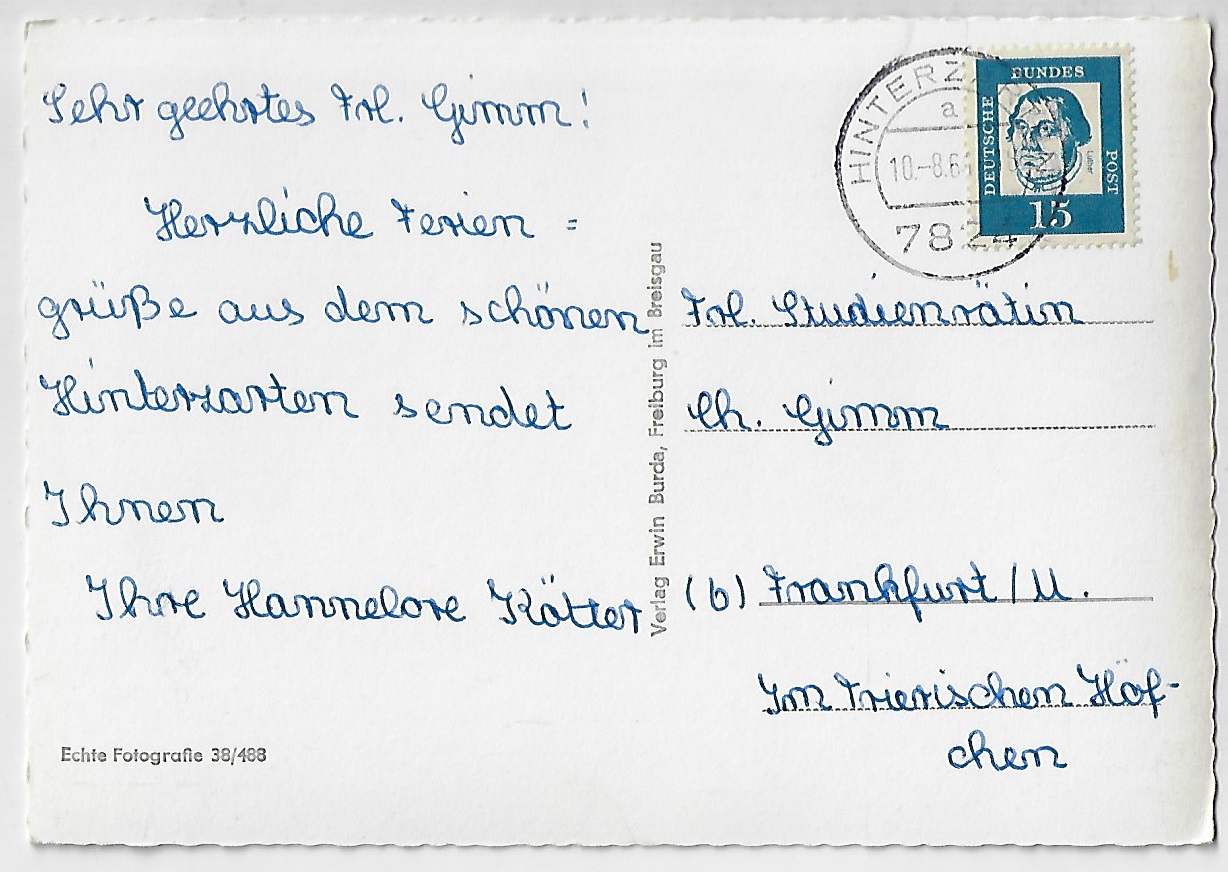 Sehr geehrtes Frl. Gimm!
Herzliche Ferien =
grüße aus dem schönen
Hinterzarten sendet
Ihnen
Ihre Hannelore Kötter
Echte Fotografie 38/488
Verlag Erwin Burda, Freiburg im Breisgau
HINTERZARTEN
a
10.-8.6
7824
DEUTSCHE
BUNDES
POST
15
Frl. Studienrätin
Ch. Gimm
(6) Frankfurt/M.
Im Trierischen Höf-
chen